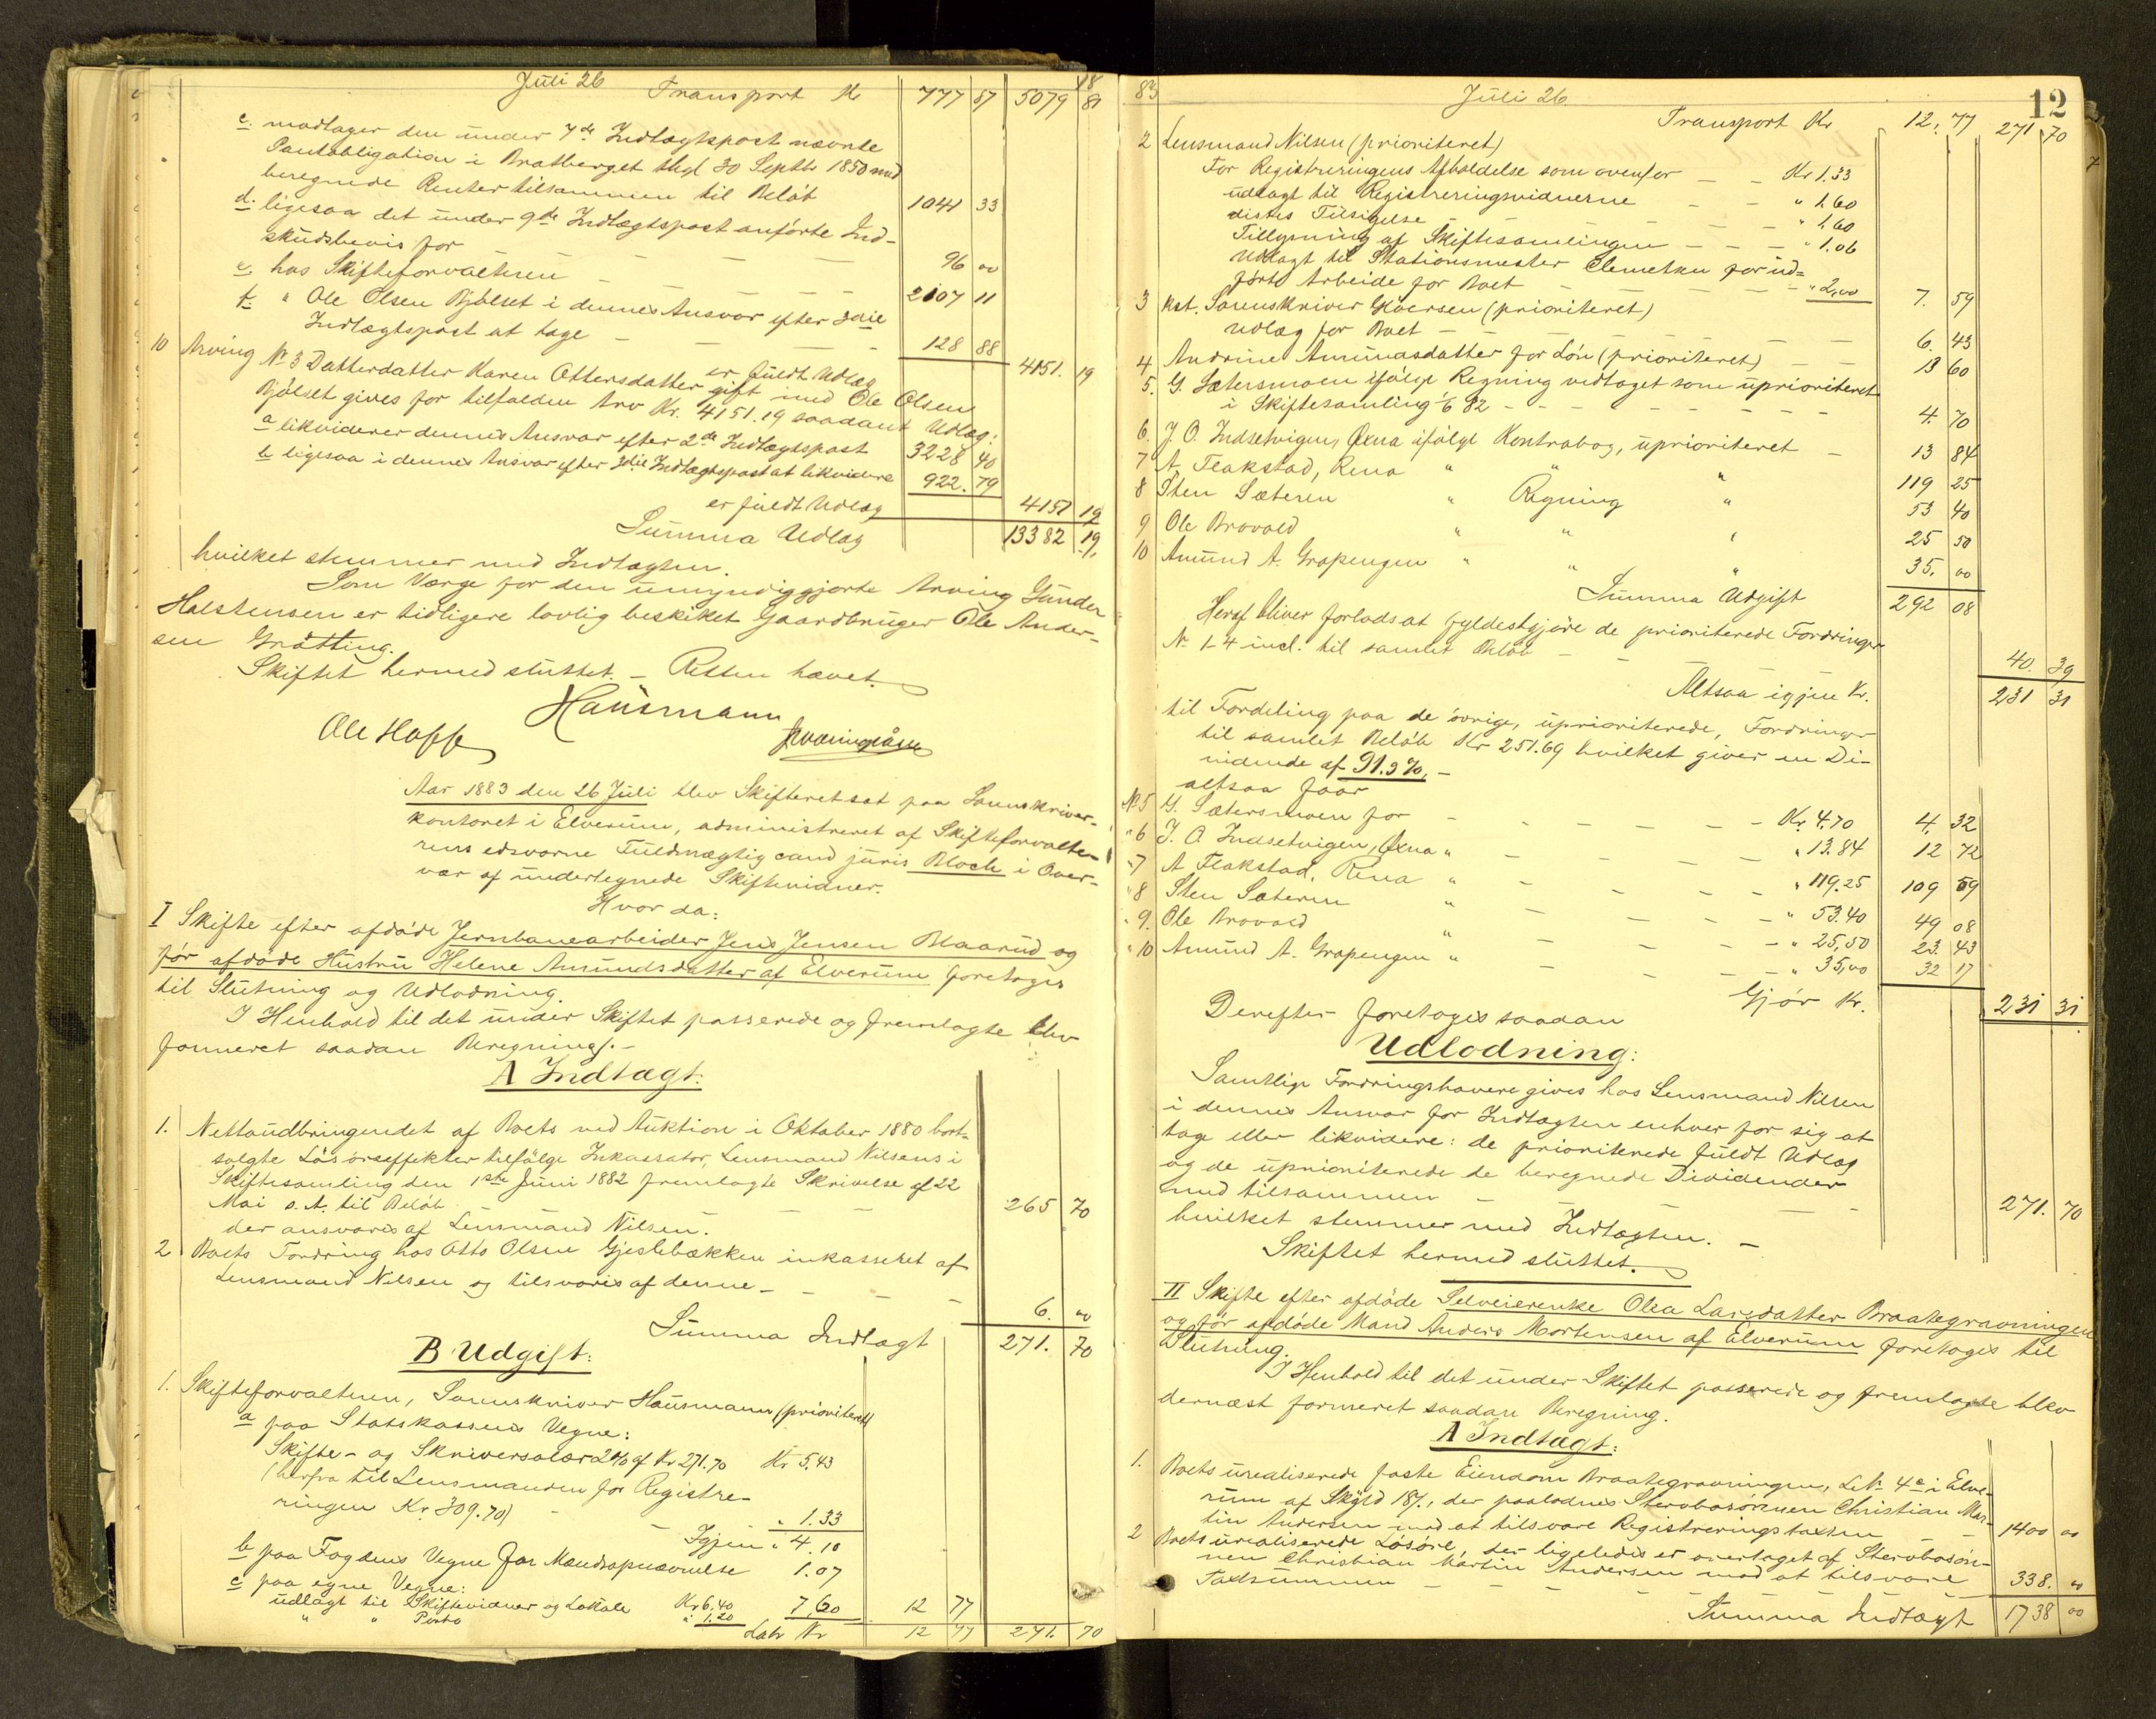 Juli 26
18
Transport Kr 777 87 5079 81
c. modtager den under 7de Indtægtspost nævnte
Pantobligation i Bratberget thgl 30 Septbr 1850 med
beregnede Renter tilsammen til Beløb 1041 33
d. ligesaa det under 9de Indtægtspost anførte Ind-
skudsbevis for — — — 96 00
e. hos Skifteforvalteren — — — 2107 11
f. " Ole Olsen Bjølset i dennes Ansvar efter 3die
Indtægtspost at tage — — — 128 88
er fuldt Udlæg 4151. 19
10 Arving No 3 Datterdatter Karen Ottersdatter gift med Ole Olsen
Bjølset gives for tilfalden Arv Kr. 4151.19 saadant Udlæg:
a likviderer dennes Ansvar efter 2de Indtægtspost 3228 40
b ligesaa i dennes Ansvar efter 3die Indtægtspost at likvidere 922. 79
er fuldt Udlæg 4151 19
Summa Udlæg 13382 19.
hvilket stemmer med Indtægten.
Som Værge for den umyndiggjorte Arving Gunder
Halstensen er tidligere lovlig beskikket Gaardbruger Ole Ander-
sen Grøtting.
Skiftet hermed sluttet. — Retten hævet.
Hausmann
Ole Hoff
Aar 1883 den 26 Juli blev Skifteret sat paa Sorenskriver-
kontoret i Elverum, administreret af Skifteforvalte-
rens edsvorne Fuldmægtig cand juris Bloch i Over-
vær af undertegnede Skiftevidner.
Hvor da:
I Skifte efter afdøde Jernbanearbeider Jens Jensen Blaarud og
før afdøde Hustru Helene Amundsdatter af Elverum foretoges
til Slutning og Udlodning.
I Henhold til det under Skiftet passerede og fremlagte blev
formeret saadan Beregning. —
A Indtægt:
1. Nettoudbringendet af Boets ved Auktion i Oktober 1880 bort-
solgte Løsøreeffekter tilfølge Inkassator, Lensmand Nilsens i
Skiftesamling den 1ste Juni 1882 fremlagte Skrivelse af 22
Mai s. A. til Beløb — — — 265 70
der ansvares af Lensmand Nilsen.
2 Boets Fordring hos Otto Olsen Gjeslebækken inkasseret af
Lensmand Nilsen og tilsvares af denne — — — 6. 00
Summa Indtægt 271. 70
B Udgift:
1. Skifteforvalteren, Sorenskriver Hausmann (prioriteret)
a paa Statskassens Vegne:
Skifte- og Skriversalær 2% af Kr 271.70 Kr 5.43
(herfra til Lensmanden for Registre-
ringen Kr. 309.70) — " 1.33
Igjen " 4.10
b paa Fogdens Vegne for Mandsopnævnelse 1.07
c paa egne Vegne:
udlagt til Skiftevidner og Lokale Kr 6.40
" " Porto " 1.20 7.60 12 77
Latr Kr 12 77 271. 70
83
Juli 26
12
Transport Kr 12. 77 271 70
2 Lensmand Nilsen (prioriteret)
For Registreringens Afholdelse som ovenfor — — Kr 1.33
udlagt til Registreringsvidnerne — — " 1.60
disses Tilsigelse — — " 1.60
Tillysning af Skiftesamlingen — — — " 1.06
Udlagt til Stationsmester Clemetsen for ud-
ført Arbeide for Boet — — — " 2.00 7. 59
3 kst. Sorenskriver Gløersen (prioriteret)
Udlæg for Boet — — — 6. 43
4 Andrine Amundsdatter for Løn (prioriteret) — 13 60
5. G. Sætersmoen ifølge Regning vedtaget som uprioriteret
i Skiftesamling 1/6 82 — — — 4. 70
6. J. O. Indsetvigen, Øxna ifølge Kontrabog, uprioriteret — 13 84
7 A Flakstad, Rena " " " 119 25
8 Sten Sæteren " Regning " 53 40
9 Ole Brovold " " " 25 50
10 Amund A. Grapengen " " " 35. 00
Summa Udgift 292 08
Heraf bliver forlods at fyldestgjøre de prioriterede Fordringer
No 1-4 incl. til samlet Beløb — — — 40. 39
Altsaa igjen Kr. 231 31
til Fordeling paa de øvrige, uprioriterede, Fordringer
til samlet Beløb Kr 251.69 hvilket giver en Di-
vidende af 91.9 %. —
altsaa faar
No 5 G. Sætersmoen for — — — Kr. 4.70 4. 32
" 6 J. O. Indsetvigen, Øxna " — — — " 13.84 12 72
" 7 A Flakstad, Rena " — — — " 119.25 109 59
" 8 Sten Sæteren " — — — " 53.40 49 08
" 9. Ole Brovold " — — — " 25,50 23. 43
" 10 Amund A. Grapengen " — — — " 35,00 32 17
Gjør Kr. 231 31
Derefter foretoges saadan
Udlodning:
Samtlige Fordringshavere gives hos Lensmand Nilsen
i dennes Ansvar for Indtægten enhver for sig at
tage eller likvidere: de prioriterede fuldt Udlæg
og de uprioriterede de beregnede Dividender
med tilsammen — — — 271. 70
hvilket stemmer med Indtægten. —
Skiftet hermed sluttet.
II Skifte efter afdøde Selveierenke Olea Larsdatter Braategravningen
og før afdøde Mand Anders Mortensen af Elverum foretoges til
Slutning.
I Henhold til det under Skiftet passerede og fremlagte blev
dernæst formeret saadan Beregning.
A Indtægt:
1. Boets urealiserede faste Eiendom Braategravningen, L No 4 c i Elve-
rum af Skyld 18 ?, der paalodnes Stervbosønnen Christian Mar-
tin Andersen mod at tilsvare Registreringstaxten — — 1400 00
2 Boets urealiserede Løsøre, der ligeledes er overtaget af Stervbosøn-
nen Christian Martin Andersen mod at tilsvare
Taxtsummen — — — 338. 00
Summa Indtægt 1738 00